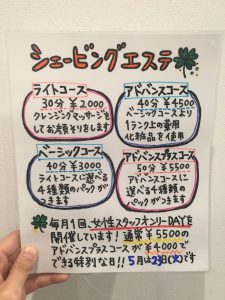 シェービングエステ
ライトコース
30分 ¥2000
クレンジングマッサージを
してお顔そりをします
アドバンスコース
40分 ¥4500
ベーシックコースより
1ランク上の専用
化粧品を使用
ベーシックコース
40分 ¥3000
ライトコースに選べる
4種類のパックが
つきます
アドバンスプラスコース
50分 ¥5500
アドバンスコースに
選べる4種類の
パックがつきます
毎月1回、女性スタッフオンリーDAYを
開催しています!通常¥5500の
アドバンスプラスコースが¥4000で
できる特別な日!!5月は23日(火)です